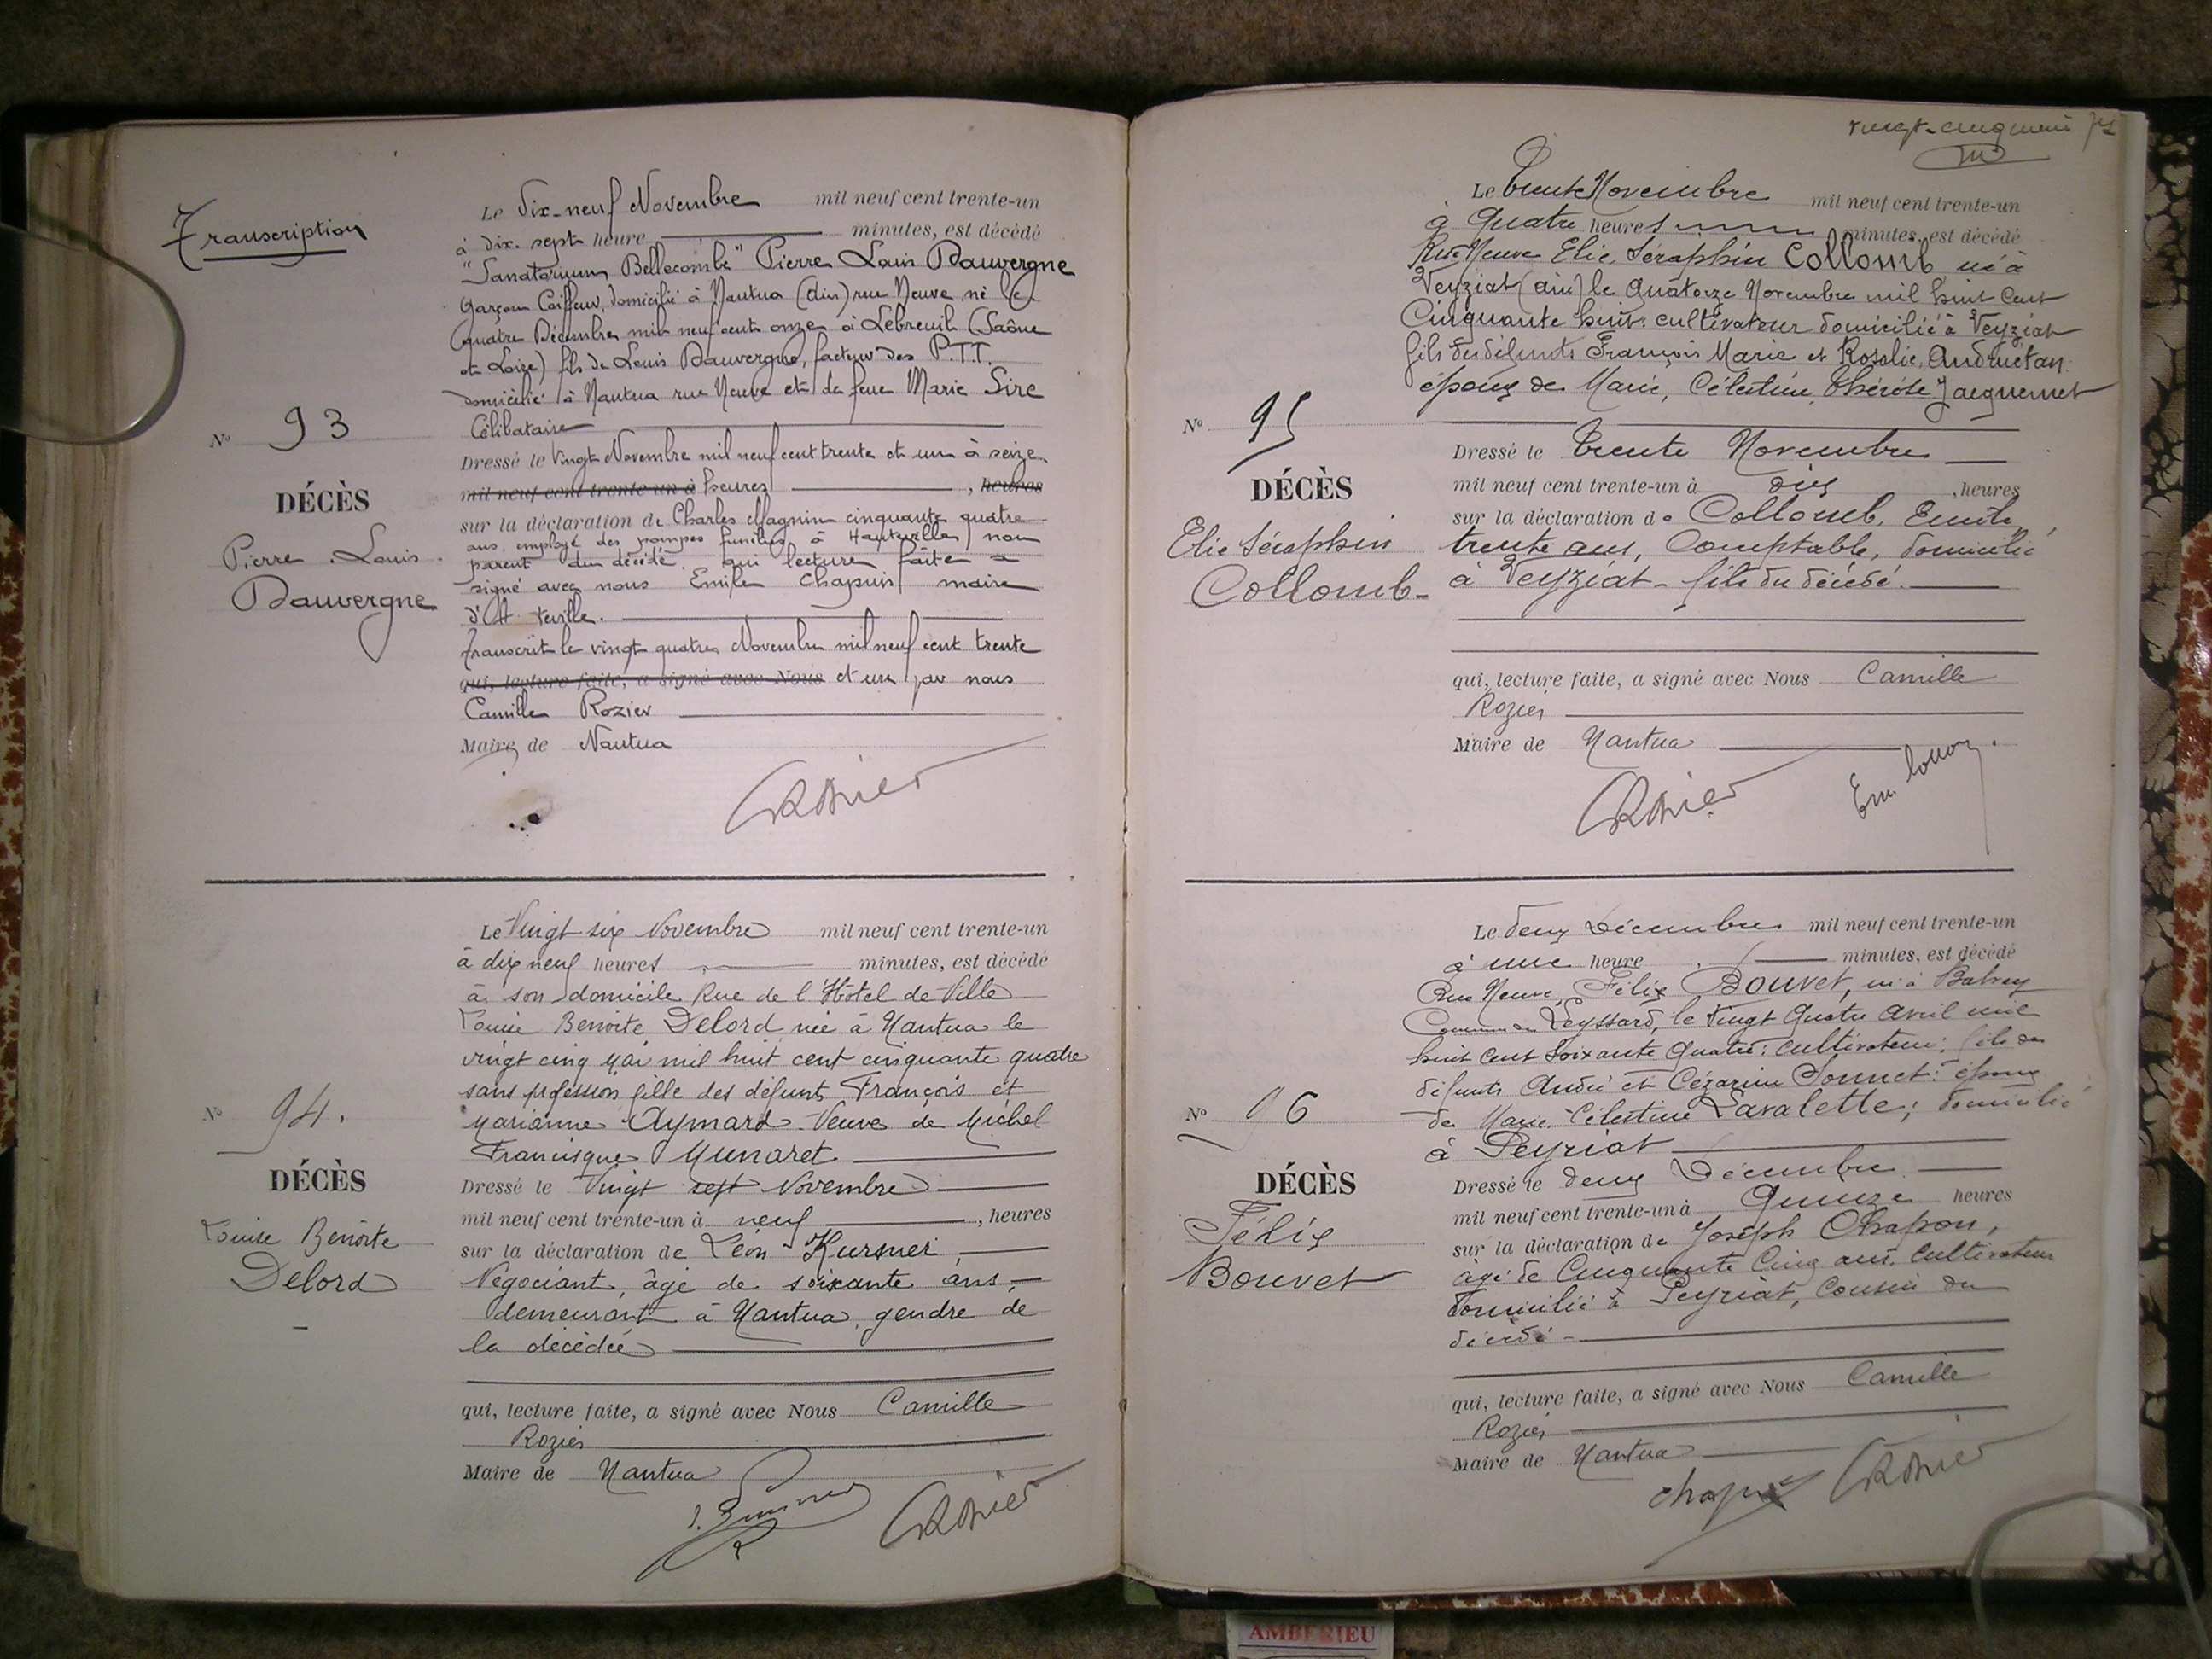 Transcription
Le Dix-neuf Novembre mil neuf cent trente-un
à dix-sept heure minutes, est décédé
"Sanatorium Bellecombe" Pierre Louis Dauvergne
Garçon Coiffeur, domicilié à Nantua (Ain) rue Neuve né le
quatre Décembre mil neuf cent onze à Lebreuil (Saône
et Loire) fils de Louis Dauvergne, facteur des P.T.T.
domicilié à Nantua rue Neuve et de feue Marie Sire
Célibataire
Nº 93
Dressé le Vingt Novembre mil neuf cent trente et un à seize
mil neuf cent trente-un à heures , heures
DÉCÈS
sur la déclaration de Charles Magnin cinquante quatre
ans employé des pompes funèbres à Hauteville, non
Pierre Louis
parent du décédé. qui lecture faite a
signé avec nous Emile Chapuis maire
Dauvergne
d'H teville.
Transcrit le vingt quatre Novembre mil neuf cent trente
qui, lecture faite, a signé avec Nous et un par nous
Camille Rozier
Maire de Nantua
CRozier
Le Vingt six Novembre mil neuf cent trente-un
à dix neuf heures minutes, est décédé
à son domicile Rue de l'Hôtel de Ville
Louise Benoite Delord née à Nantua le
vingt cinq Mai mil huit cent cinquante quatre
sans profession fille des défunts François et
Nº 94.
Marianne Aymard. Veuve de Michel
Francisque Munaret
DÉCÈS
Dressé le Vingt sept Novembre
mil neuf cent trente-un à neuf , heures
Louise Benoite
sur la déclaration de Léon
Delord
Négociant, âgé de soixante ans,
demeurant à Nantua, gendre de
la décédée
qui, lecture faite, a signé avec Nous Camille
Rozier
Maire de Nantua
CRozier
vingt-cinquième
Le trente Novembre mil neuf cent trente-un
à Quatre heures minutes, est décédé
Rue Neuve Elie Séraphin Collomb né à
Veyziat (ain) le Quatorze Novembre mil huit cent
Cinquante huit: cultivateur domicilié à Veyziat
fils des défunts François Marie et Rosalie
époux de Marie, Célestine, Thérèse Jacquemet
Nº 95
Dressé le trente Novembre
DÉCÈS
mil neuf cent trente-un à dix , heures
sur la déclaration de Collomb, Emile,
Elie Séraphin
trente ans, Comptable, domicilié
Collomb
à Veyziat - fils du décédé.
qui, lecture faite, a signé avec Nous Camille
Rozier
Maire de Nantua
CRozier
Le deux Décembre mil neuf cent trente-un
à une heure minutes, est décédé
Rue Neuve, Félix Bouvet, né à
Commune Leyssard, le Vingt Quatre avril mil
huit cent soixante Quatre: cultivateur: fils des
défunts André et Cézarine époux
Nº 96
de Marie Célestine Lavalette; domicilié
à Peyriat
DÉCÈS
Dressé le deux Décembre
mil neuf cent trente-un à Quinze heures
Félix
sur la déclaration de Joseph Chapon,
Bouvet
âgé de Cinquante Cinq ans, cultivateur
domicilié à Peyriat, Cousin du
décédé
qui, lecture faite, a signé avec Nous Camille
Rozier
Maire de Nantua
CRozier
AMBERIEU